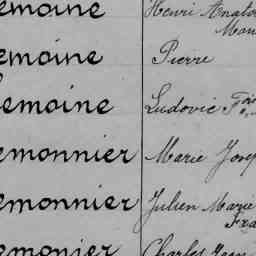 emoine Henri Anato
Mau
emoine Pierre
emoine Ludovic
emonnier Marie Jose
emonnier Julien Marie
Fra
emonier Charles Jean